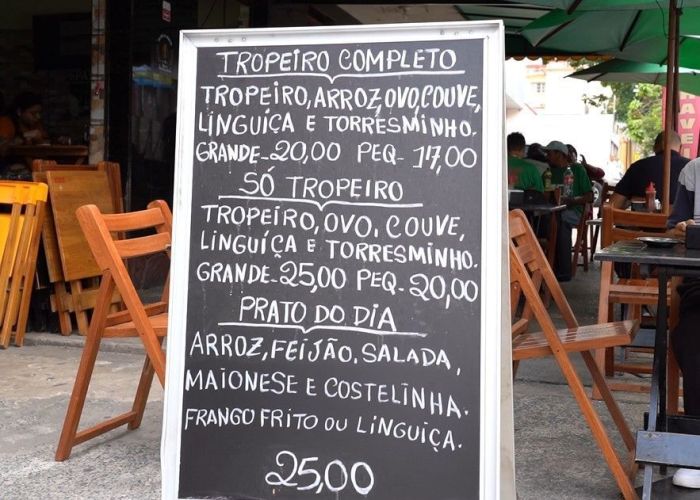 TROPEIRO COMPLETO
TROPEIRO, ARROZ, OVO, COUVE,
LINGUIÇA E TORRESMINHO.
GRANDE - 20,00 PEQ - 17,00
SÓ TROPEIRO
TROPEIRO, OVO, COUVE,
LINGUIÇA E TORRESMINHO.
GRANDE - 25,00 PEQ - 20,00
PRATO DO DIA
ARROZ, FEIJÃO, SALADA,
MAIONESE E COSTELINHA.
FRANGO FRITO OU LINGUIÇA.
25,00